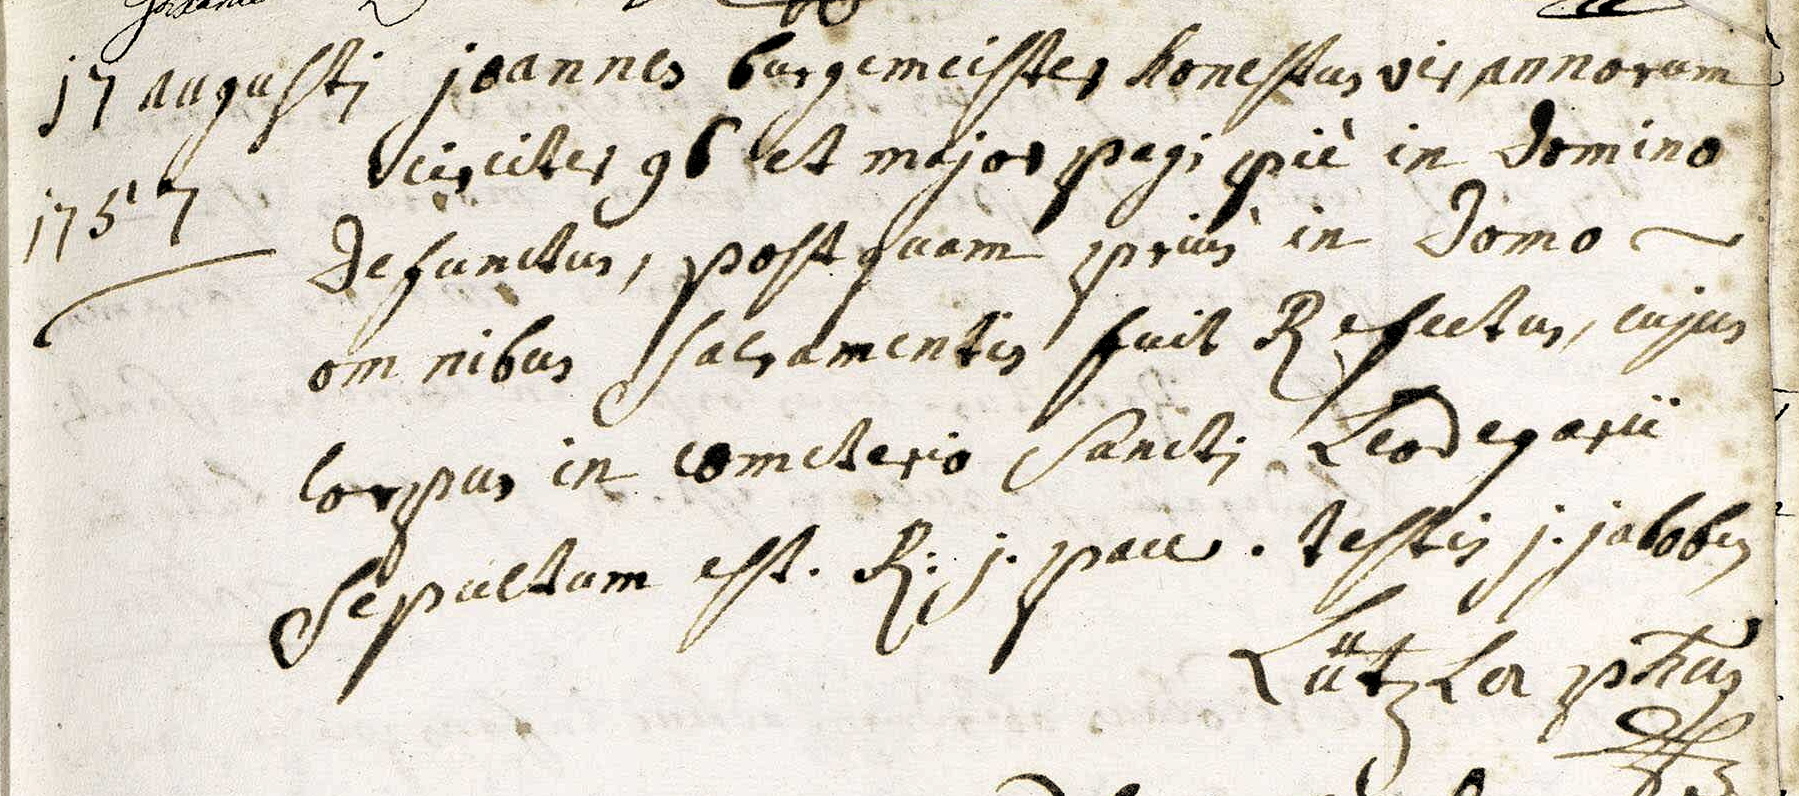 17 augustj joannes burgemeister honestus vir, annorum
1757 circiter 96 et major pagi piè in Domino
Defunctus, postquam priùs in Domo ~
omnibus sacramentis fuit Refectus, cujus
Corpus in cometerio Sanctj Leodegarii
Sepultum est. R: j. pace. testis j. jacobus
Lützler pchus